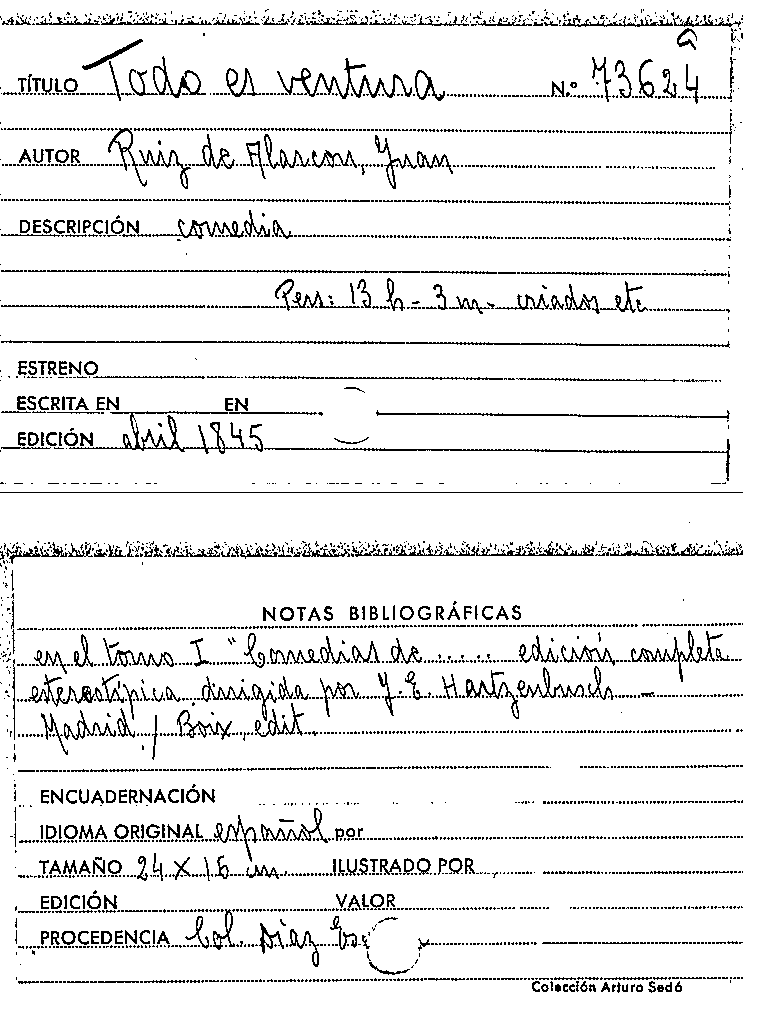 G
TÍTULO Todo es ventura N.º 73624
AUTOR Ruiz de Alarcon, Juan
DESCRIPCIÓN comedia
Pers: 13 h - 3 m - criados etc
ESTRENO
ESCRITA EN EN
EDICIÓN abril 1845
NOTAS BIBLIOGRÁFICAS
en el tomo I "Comedias de ..... edición completa
estereotípica dirigida por J. E. Hartzenbusch -
Madrid / Boix, edit.
ENCUADERNACIÓN
IDIOMA ORIGINAL español por
TAMAÑO 24 X 16 cm. ILUSTRADO POR
EDICIÓN VALOR
PROCEDENCIA Col. Díaz
Colección Arturo Sedó